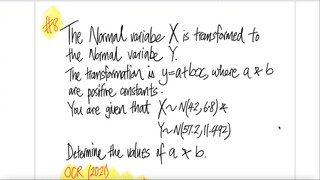 #8
The Normal variabe X is transformed to
the Normal variabe Y.
The transformation is y=a+bx, where a & b
are positive constants.
You are given that X~N(42, 6.8) &
Y~N(57.2, 11.492)
Determine the values of a & b.
OCR (2021)